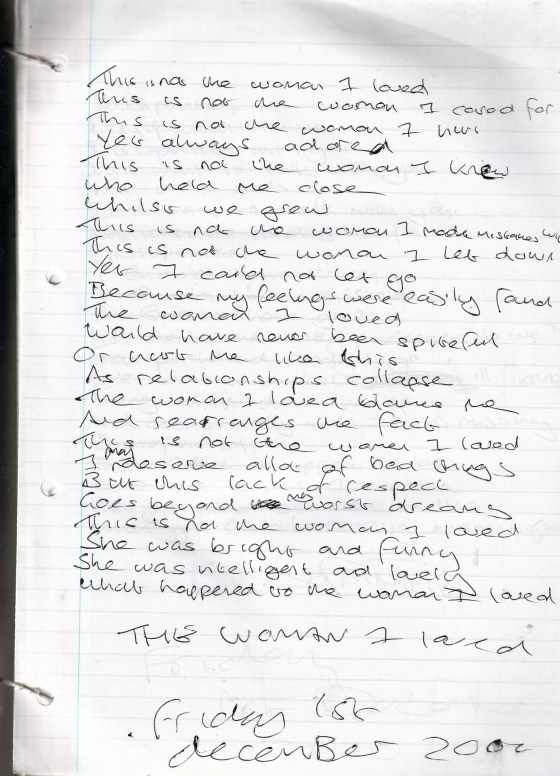 This is not the woman I loved
This is not the woman I cared for
This is not the woman I hurt
Yet always adored
This is not the woman I knew
who held me close
whilst we grew
This is not the woman I made mistakes with
This is not the woman I let down
Yet I could not let go
Because my feelings were easily found
The woman I loved
Would have never been spiteful
Or hurt me like this
As relationships collapse
The woman I loved blames me
And rearranges the fact
This is not the woman I loved
I may deserve alot of bad things
But this lack of respect
Goes beyond my worst dreams
This is not the woman I loved
She was bright and funny
She was intelligent ad lovely
what happened to the woman I loved
THE WOMAN I loved
Friday 1st
december 2000